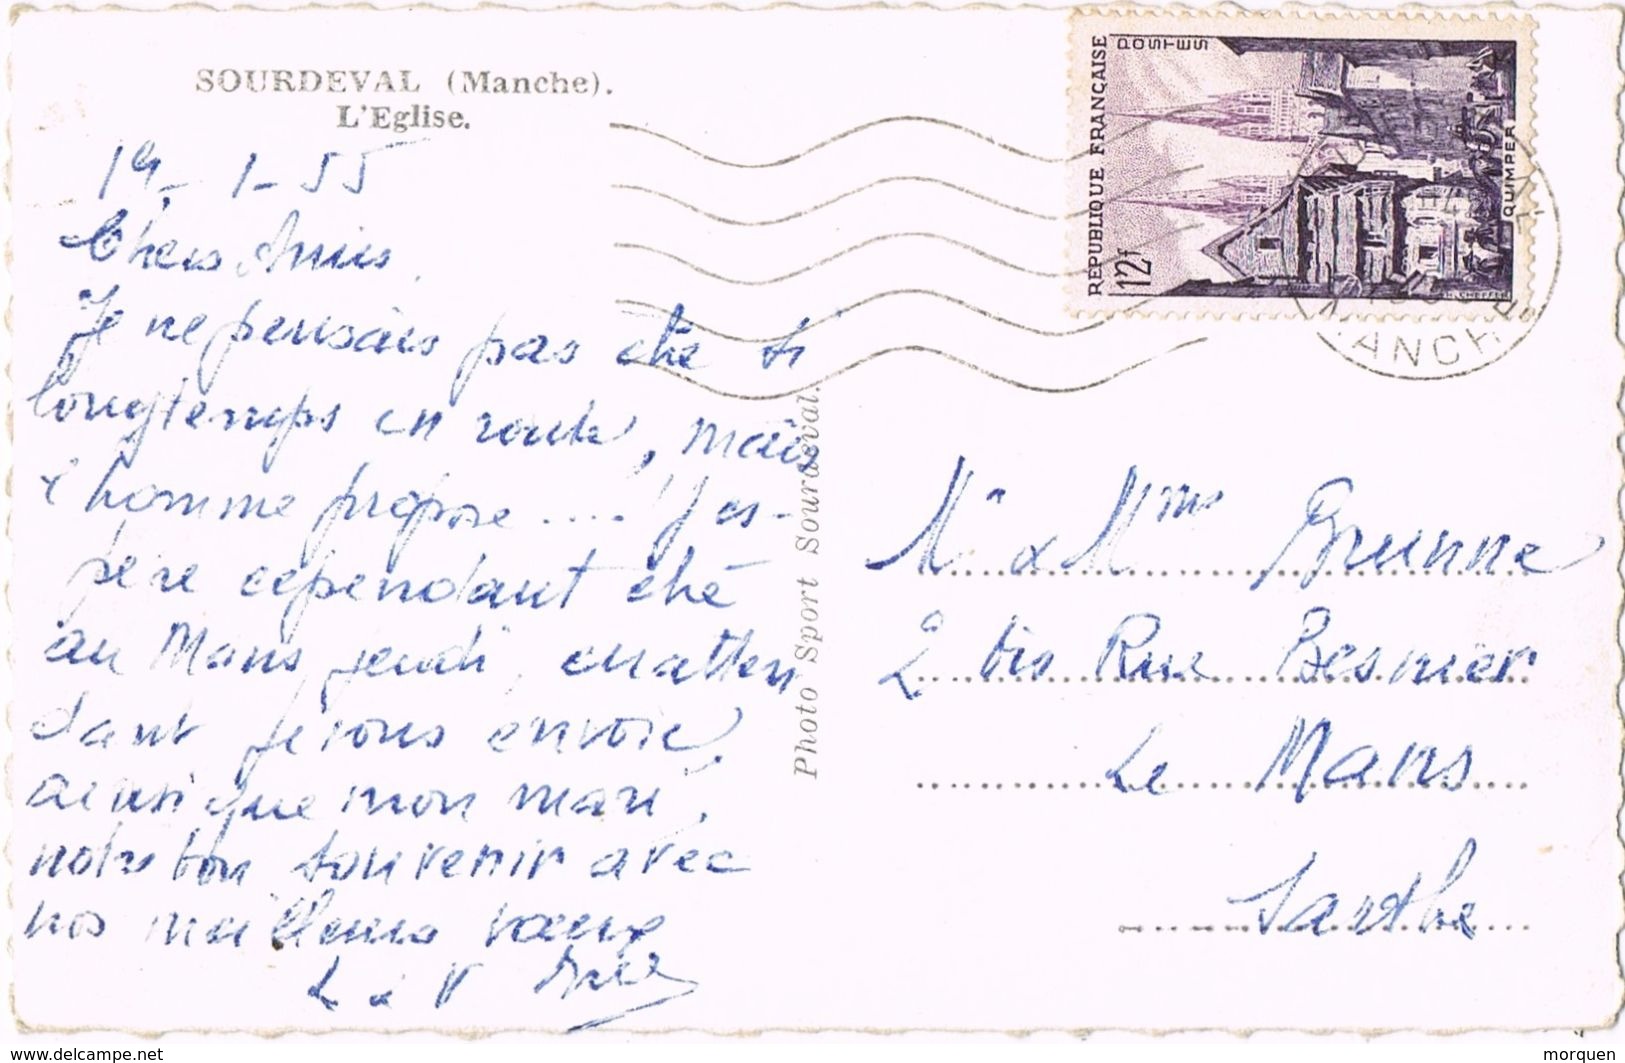 SOURDEVAL (Manche).
L'Eglise.
19-1-55
Chers Amis,
Je ne pensais pas être si
longtemps en route, mais
l'homme propose.... J'es-
père cependant être
au Mans jeudi, en atten
dant je vous envoie,
ainsi que mon mari,
notre bon souvenir avec
nos meilleurs vœux
L & V
Photo Sport Sourdeval.
RÉPUBLIQUE FRANÇAISE
POSTES
12F
QUIMPER
MANCHE
Mr & Mme Brunne
2 bis Rue Besnier
Le Mans
Sarthe
www.delcampe.net
morquen